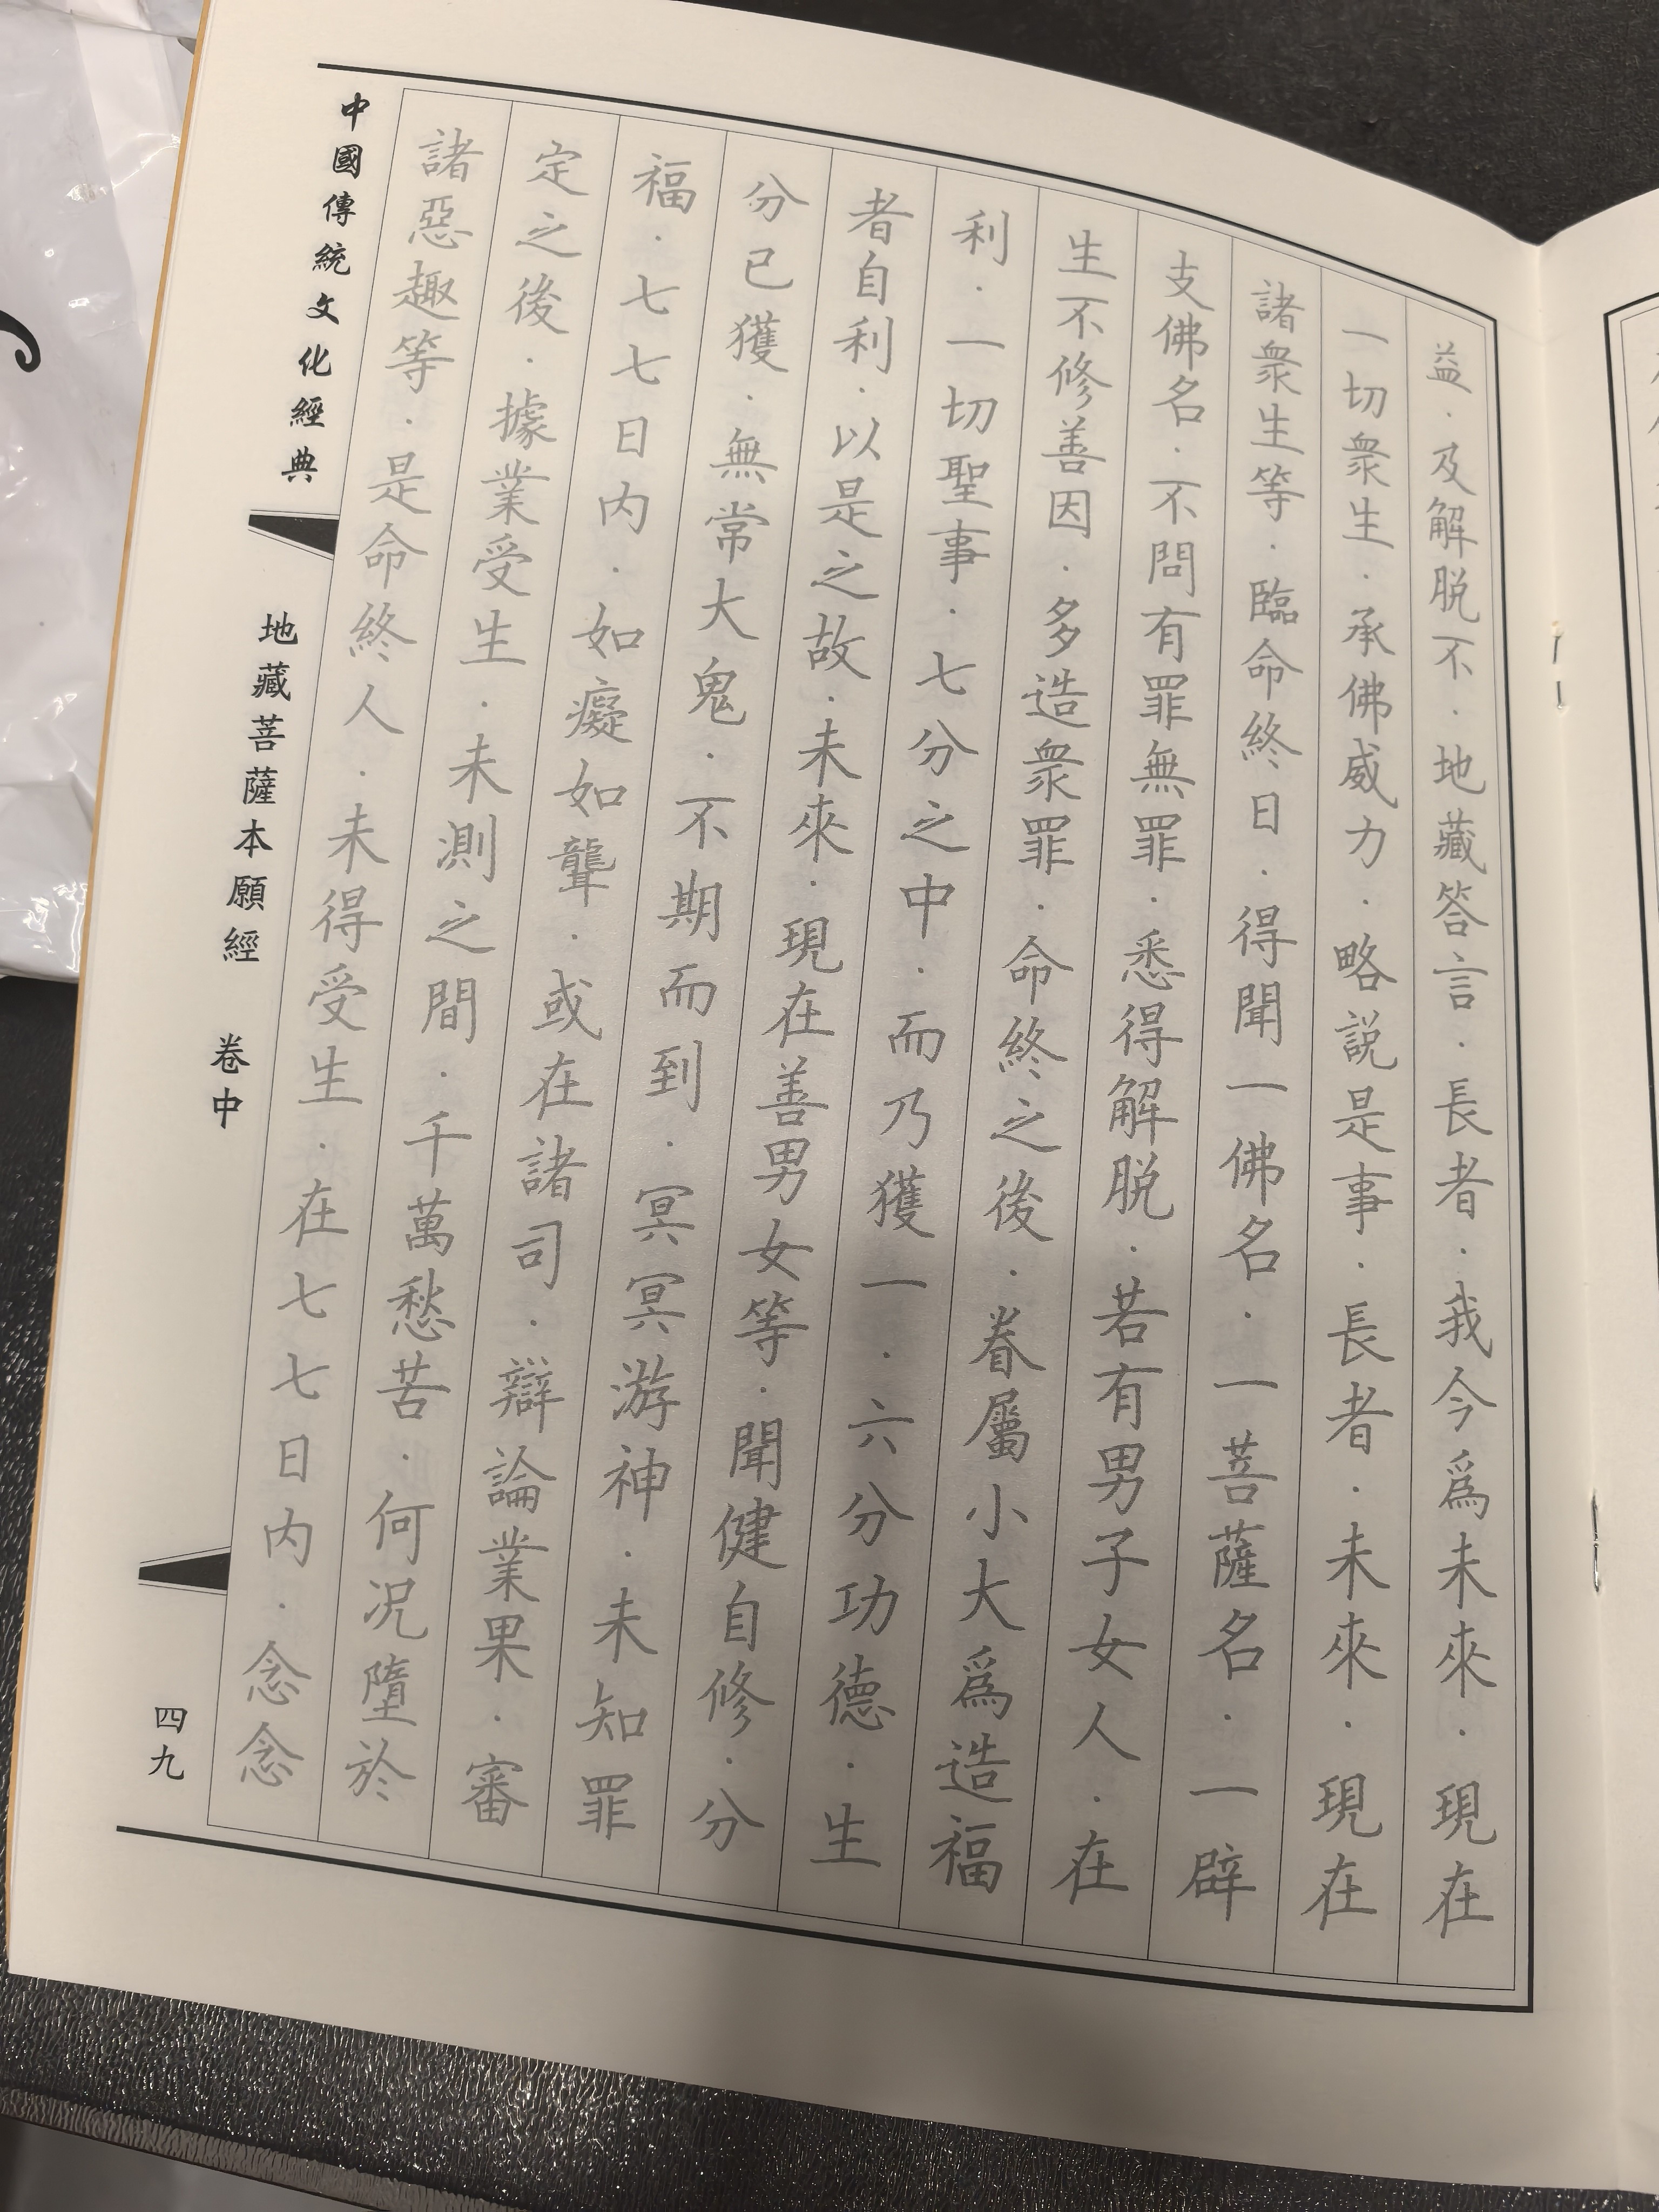 益．及解脱不．地藏答言．長者．我今爲未來．現在
一切衆生．承佛威力．略説是事．長者．未來．現在
諸衆生等．臨命終日．得聞一佛名．一菩薩名．一辟
支佛名．不問有罪無罪．悉得解脱．若有男子女人．在
生不修善因．多造衆罪．命終之後．眷屬小大爲造福
利．一切聖事．七分之中．而乃獲一．六分功德．生
者自利．以是之故．未來．現在善男女等．聞健自修．分
分已獲．無常大鬼．不期而到．冥冥游神．未知罪
福．七七日内．如癡如聾．或在諸司．辯論業果．審
定之後．據業受生．未測之間．千萬愁苦．何况墮於
諸惡趣等．是命終人．未得受生．在七七日内．念念
中國傳統文化經典
地藏菩薩本願經 卷中
四九